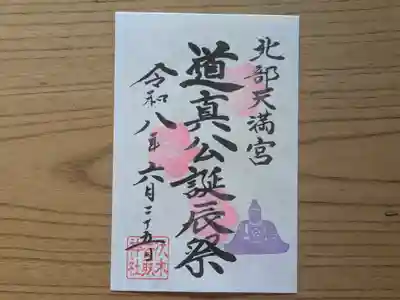 北部天満宮
道真公誕辰祭
令和八年六月二十五日